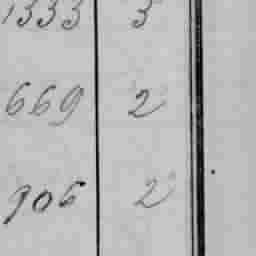 1333 3
669 2
906 2